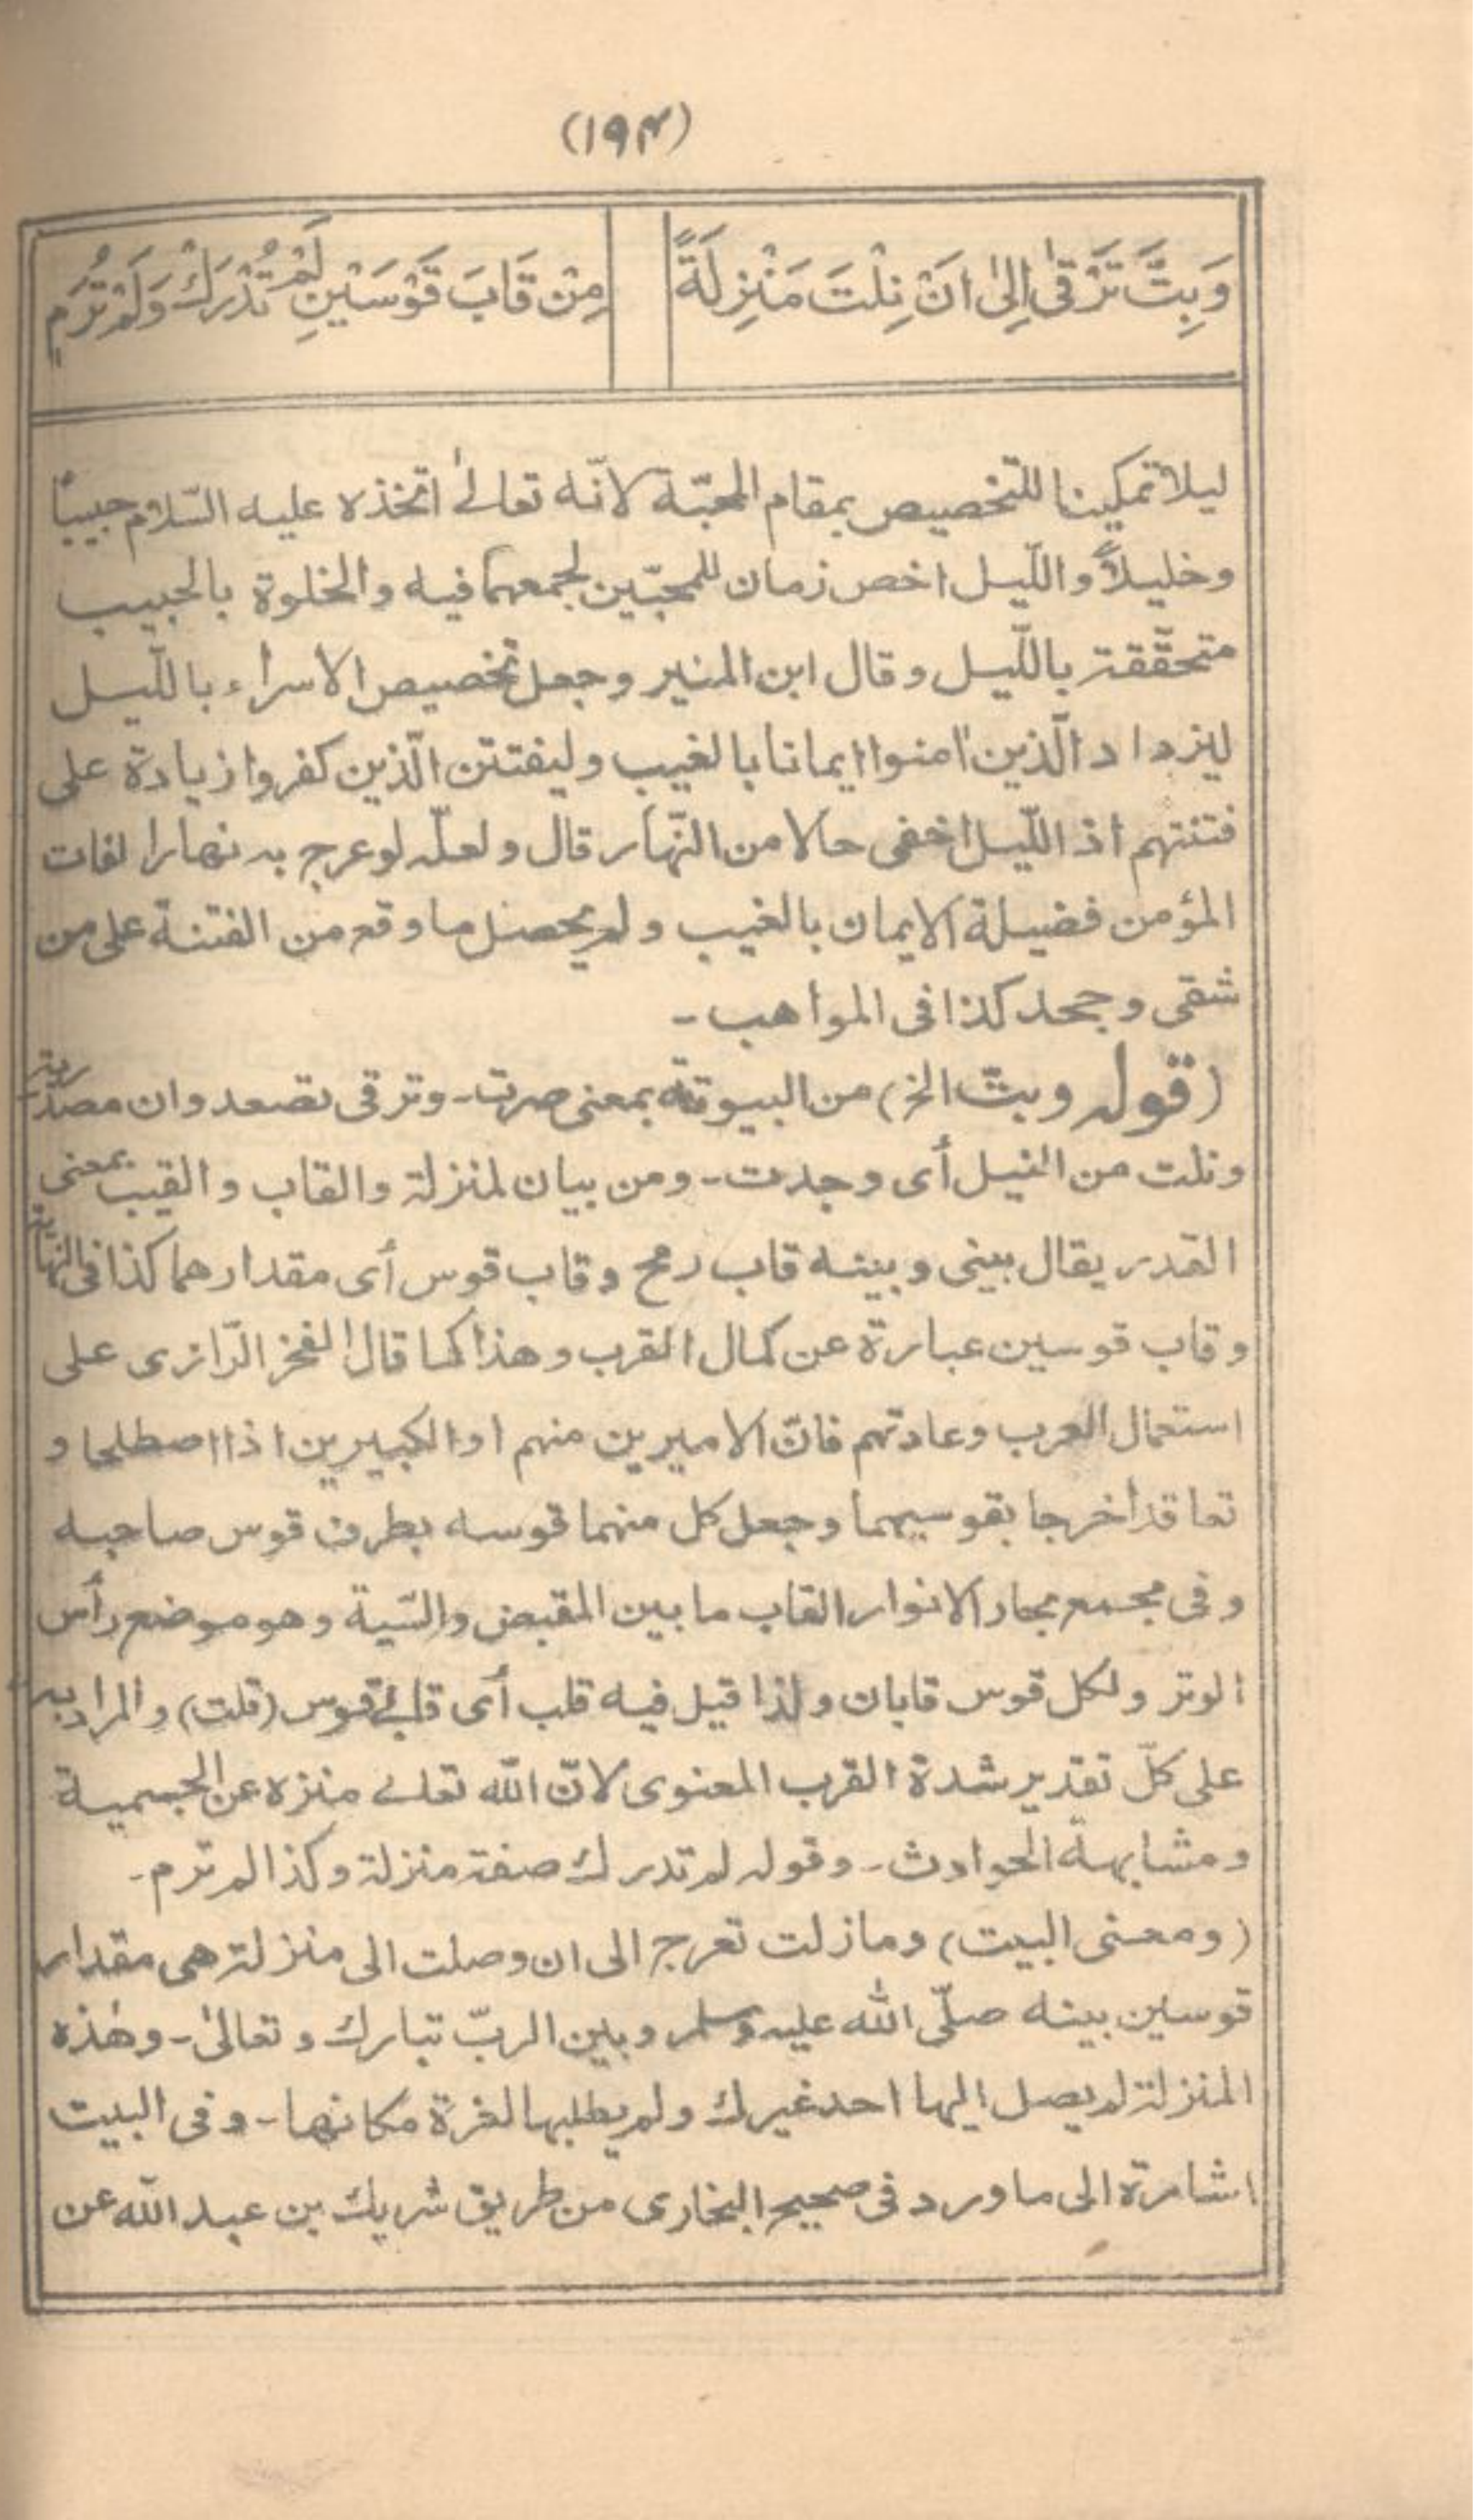 (١٩٤)
وَبِتَّ تَرْقىٰ اِلىٰ اَنْ نِلْتَ مَنْزِلَةً
مِنْ قَابَ قَوْسَيْنِ لَمْ تُدْرَكْ وَلَمْ تُرَمِ
ليلا تمكينا للتّخصيص بمقام المحبّة لانّه تعالىٰ اتخذه عليه السّلام حبيبًا
وخليلاً واللّيل اخص زمان للمحبّين لجمعهما فيه والخلوة بالحبيب
متحقّقة باللّيل وقال ابن المنير وجعل تخصيص الاسراء باللّيل
ليزداد الّذين اٰمنوا ايمانا بالغيب وليفتتن الّذين كفروا زيادة على
فتنتهم اذ اللّيل اخفى حالا من النّهار قال ولعلّه لو عرج به نهارا لفات
المؤمن فضيلة الايمان بالغيب ولم يحصل ما وقع من الفتنة على من
شقى وجحد كذا فى المواهب۔
(قوله وبتّ الخ) من البيوتة بمعنى صرت۔ وترقى تصعد وان مصدّرية
ونلت من النيل أى وجدت۔ ومن بيان لمنزلة والقاب والقيب بمعنى
القدر يقال بينى وبينه قاب رمح وقاب قوس أى مقدارهما كذا فى النهاية
وقاب قوسين عبارة عن كمال القرب وهذا كما قال الفخر الرّازى على
استعمال العرب وعادتهم فانّ الاميرين منهم او الكبيرين اذا اصطلحا و
تعاقدا خرجا بقوسيهما وجعل كل منهما قوسه بطرف قوس صاحبه
وفى مجمع بحار الانوار القاب ما بين المقبض والسّية وهو موضع رأس
الوتر ولكل قوس قابان ولذا قيل فيه قلب أى قابى قوس (قلت) والمراد به
على كلّ تقدير شدة القرب المعنوى لانّ الله تعالے منزه عن الجسمية
ومشابهة الحوادث۔ وقوله لم تدرك صفة منزلة وكذا لم ترم۔
(ومعنى البيت) وما زلت تعرج الى ان وصلت الى منزلة هى مقدار
قوسين بينه صلّى الله عليه وسلم وبين الربّ تبارك وتعالىٰ۔ وهٰذه
المنزلة لم يصل اليها احد غيرك ولم يطلبها لغرة مكانها۔ وفى البيت
اشارة الى ما ورد فى صحيح البخارى من طريق شريك بن عبد الله عن